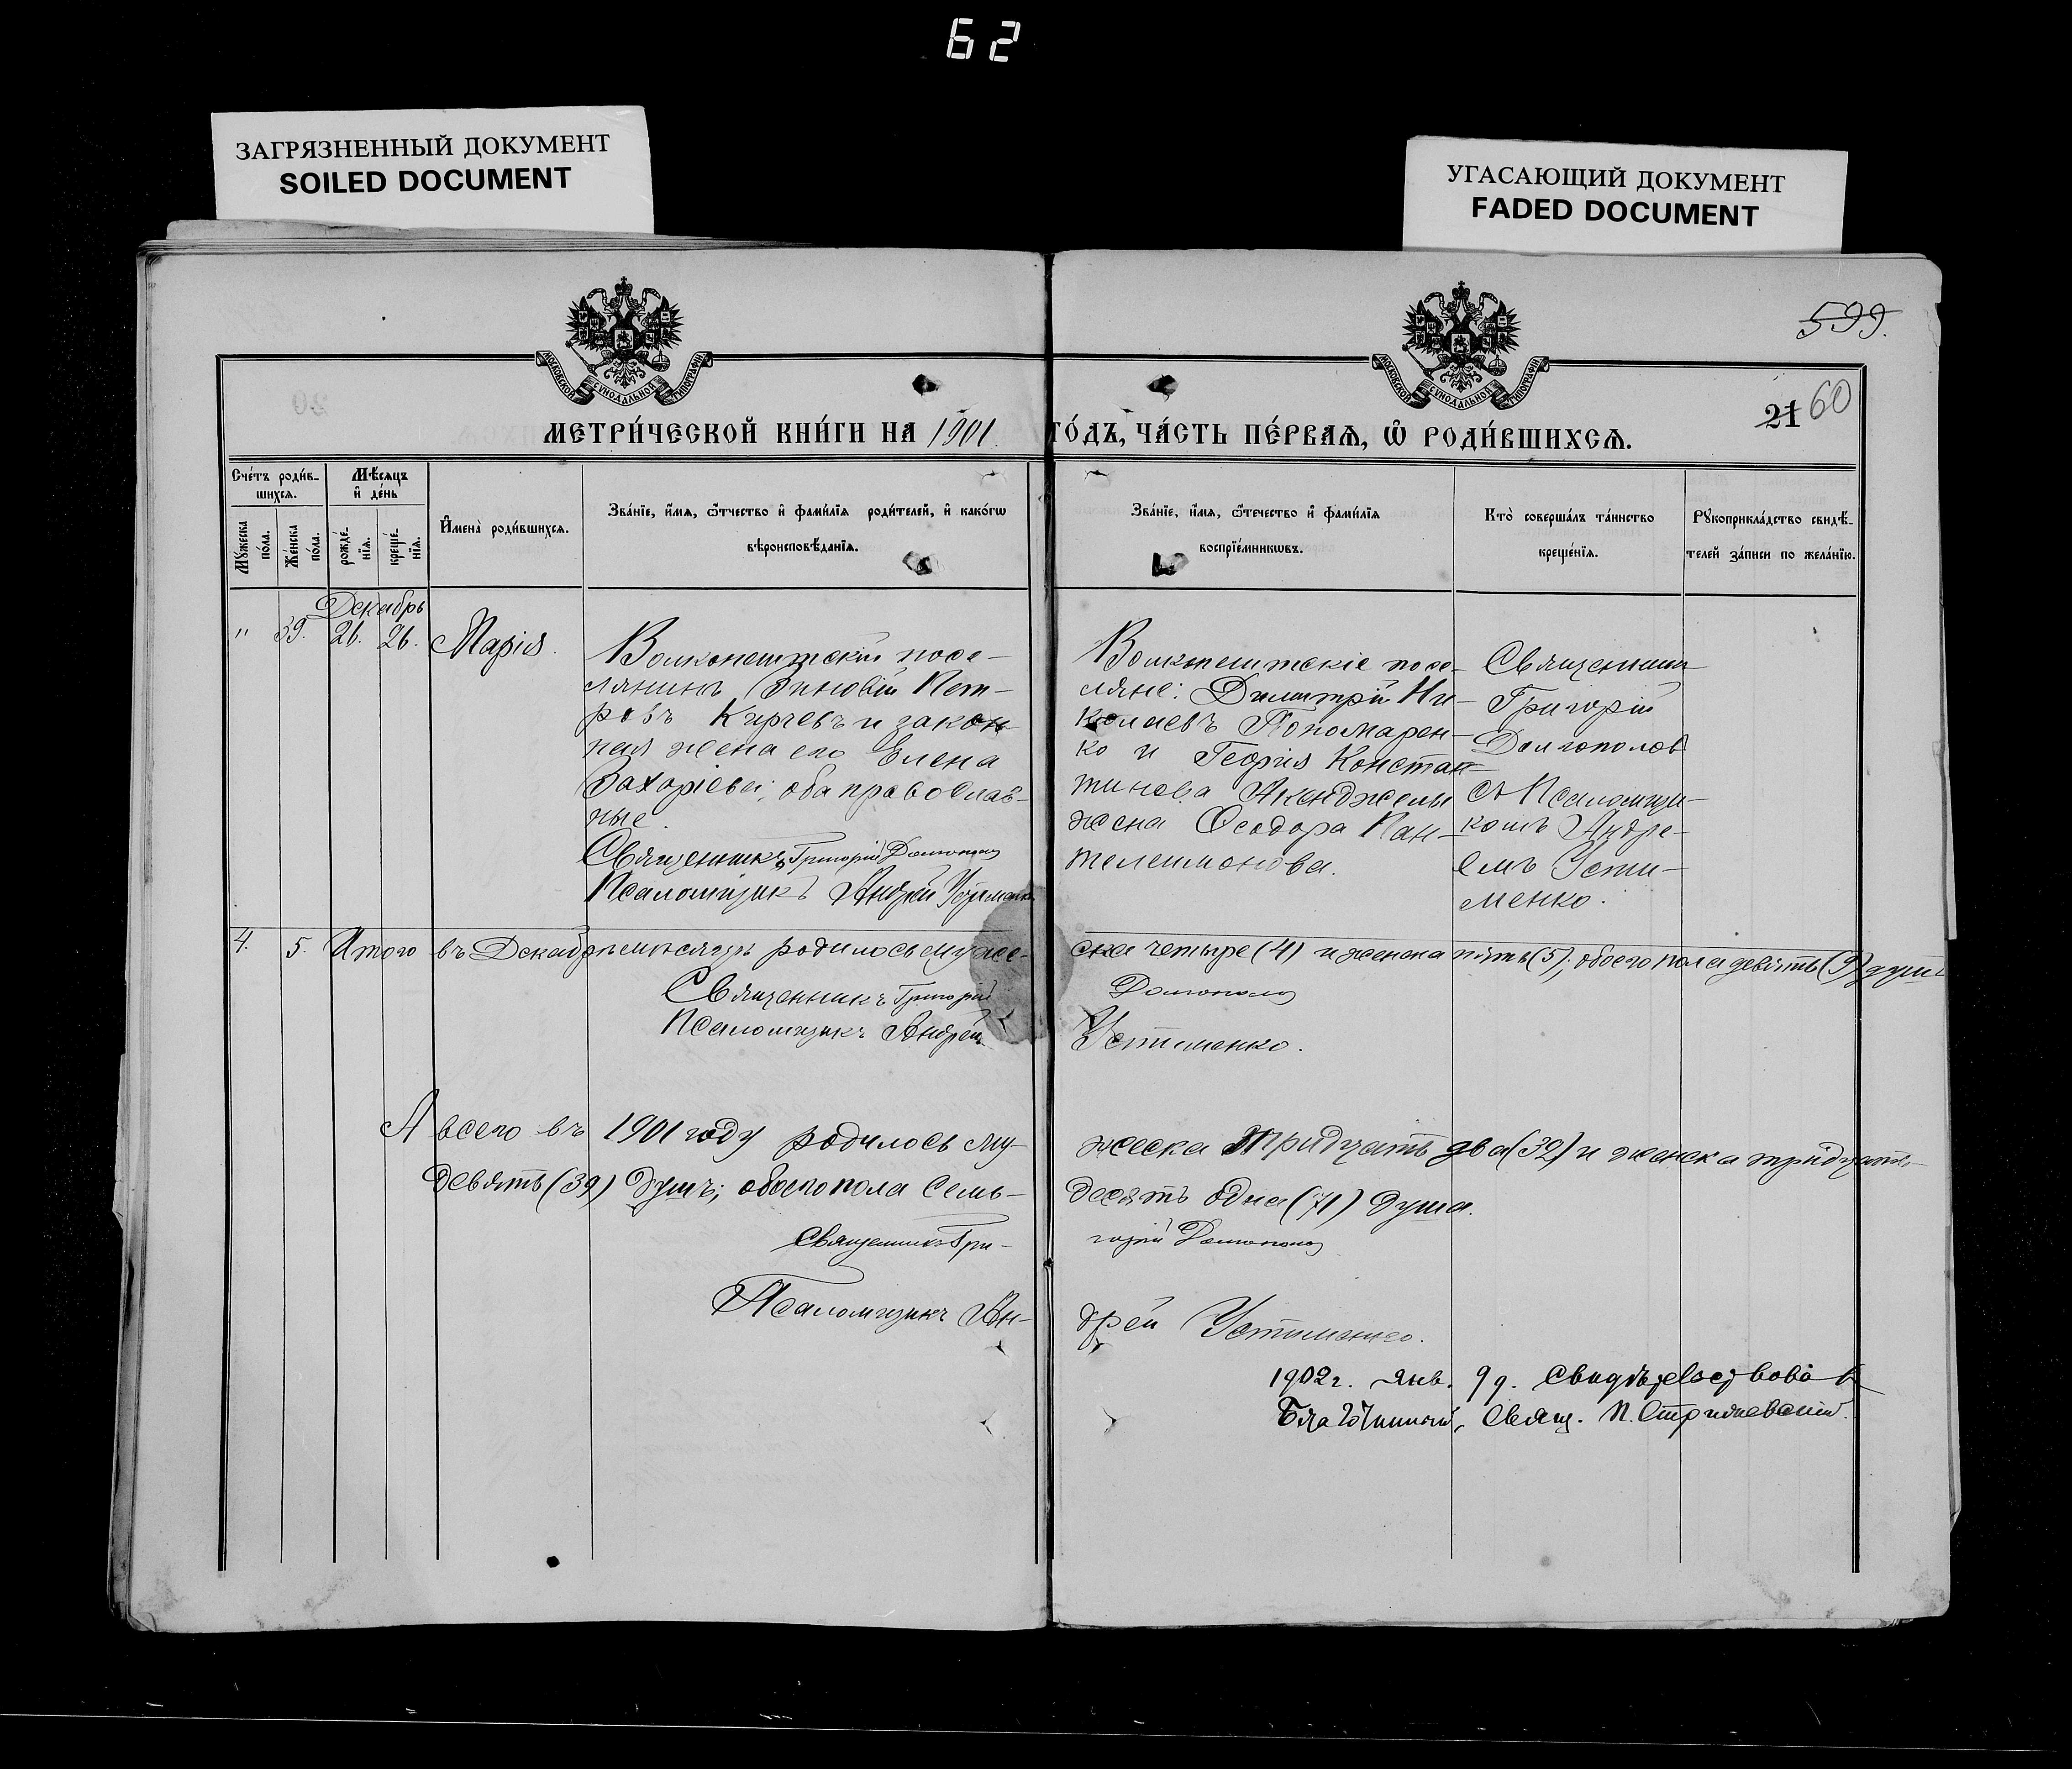 62
ЗАГРЯЗНЕННЫЙ ДОКУМЕНТ
SOILED DOCUMENT
УГАСАЮЩИЙ ДОКУМЕНТ
FADED DOCUMENT
599.
МОСКОВСКОЙ СѴНОДАЛЬНОЙ ТИПОГРАФІИ
МОСКОВСКОЙ СѴНОДАЛЬНОЙ ТИПОГРАФІИ
21 60
МЕТРИ́ЧЕСКОЙ КНИ́ГИ НА 1901. ГО́ДЪ, ЧА́СТЬ ПЕ́РВАѦ, Ѡ҆ РОДИ́ВШИХСѦ.
Сче́тъ роди́в-
шихсѧ.
Мꙋ́жеска по́ла.
Же́нска по́ла.
Мѣ́сѧцъ
и҆ де́нь
рожде́-
нїѧ.
креще́-
нїѧ.
И҆мена̀ роди́вшихсѧ.
Зва́нїе, и҆́мѧ, ѻ҆́тчество и҆ фами́лїѧ роди́телей, и҆ како́гѡ
вѣроисповѣ́данїѧ.
Зва́нїе, и҆́мѧ, ѻ҆́течество и҆ фами́лїѧ
воспрїе́мникѡвъ.
Кто̀ соверша́лъ та́инство
креще́нїѧ.
Рꙋкоприкла́дство свидѣ́-
телей за́писи по жела́нїю.
Декабрь
" 39. 26. 26. Марія.
Волконештскій посе-
лянинъ Зиновій Пет-
ровъ Кирчевъ и закон-
ная жена его Елена
Захаріева; оба православ-
ные.
Священникъ Григорій Долгополов
Псаломщикъ Андрей Устименко
Волконештскіе посе-
ляне: Димитрій Ни-
колаевъ Пономарен-
ко и Георгія Констан-
тинова Акенджелы
жена Ѳеодора Пан-
телеимонова.
Священникъ
Григорій
Долгополов
съ Псаломщи-
комъ Андре-
емъ Усти-
менко.
4. 5. Итого въ Декабрѣ мѣсяцѣ родилось муже-
ска четыре (4) и женска пять (5); обоего пола девять (9) душъ
Священникъ Григорій Долгополов
Псаломщикъ Андрей Устименко.
А всего въ 1901 году родилось му-
жеска тридцать два (32) и женска тридцать
девять (39) душъ; обоего пола семь-
десятъ одна (71) душа.
Священникъ Гри-
горій Долгополов
Псаломщикъ Ан-
дрей Устименко.
1902 г. янв. 9 д. Свидѣтельствовалъ
Благочинный, Свящ. П.